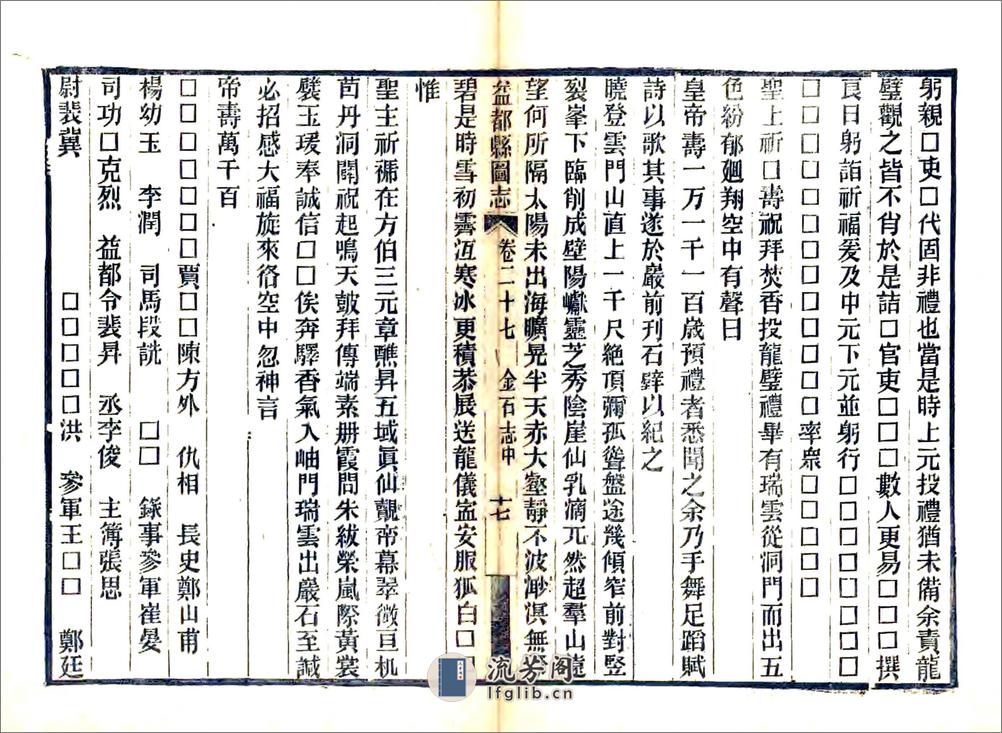 躬親□吏□代固非禮也當是時上元投禮猶未備余責龍
璧觀之皆不肖於是詰□官吏□□□數人更易□□□撰
良日躬詣祈福爰及中元下元並躬行□□□□□□□□
□□□□□□□□□□□率衆□□□□
聖上祈□壽祝拜焚香投龍璧禮畢有瑞雲從洞門而出五
色紛郁廻翔空中有聲曰
皇帝壽一万一千一百歲預禮者悉聞之余乃手舞足蹈賦
詩以歌其事遂於巖前刊石壁以紀之
曉登雲門山直上一千尺絶頂彌孤聳盤途幾傾窄前對豎
裂峯下臨削成壁陽巘靈芝秀陰崖仙乳滴兀然超羣山遠
望何所隔太陽未出海曠晃半天赤大壑靜不波渺溟無
益都縣圖志 卷二十七 金石志中 十七
碧是時雪初霽沍寒冰更積恭展送龍儀宻安服狐白□□
惟
聖主祈禠在方伯三元章醮昇五域眞仙覿帝幕翠微亘机
茵丹洞闢祝起鳴天皷拜傳端素册霞間朱紱縈嵐際黄裳
襞玉瑗奉誠信□□俟奔驛香氣入岫門瑞雲出巖石至諴
必招感大福旋來格空中忽神言
帝壽萬千百
□□□□□□□賈□□陳方外 仇相 長史鄭山甫
楊幼玉 李潤 司馬段詵 □□ 錄事參軍崔晏
司功□克烈 益都令裴昇 丞李俊 主簿張思
尉裴冀 □□□□□□洪 參軍王□□ 鄭廷
流芳阁
lfglib.cn